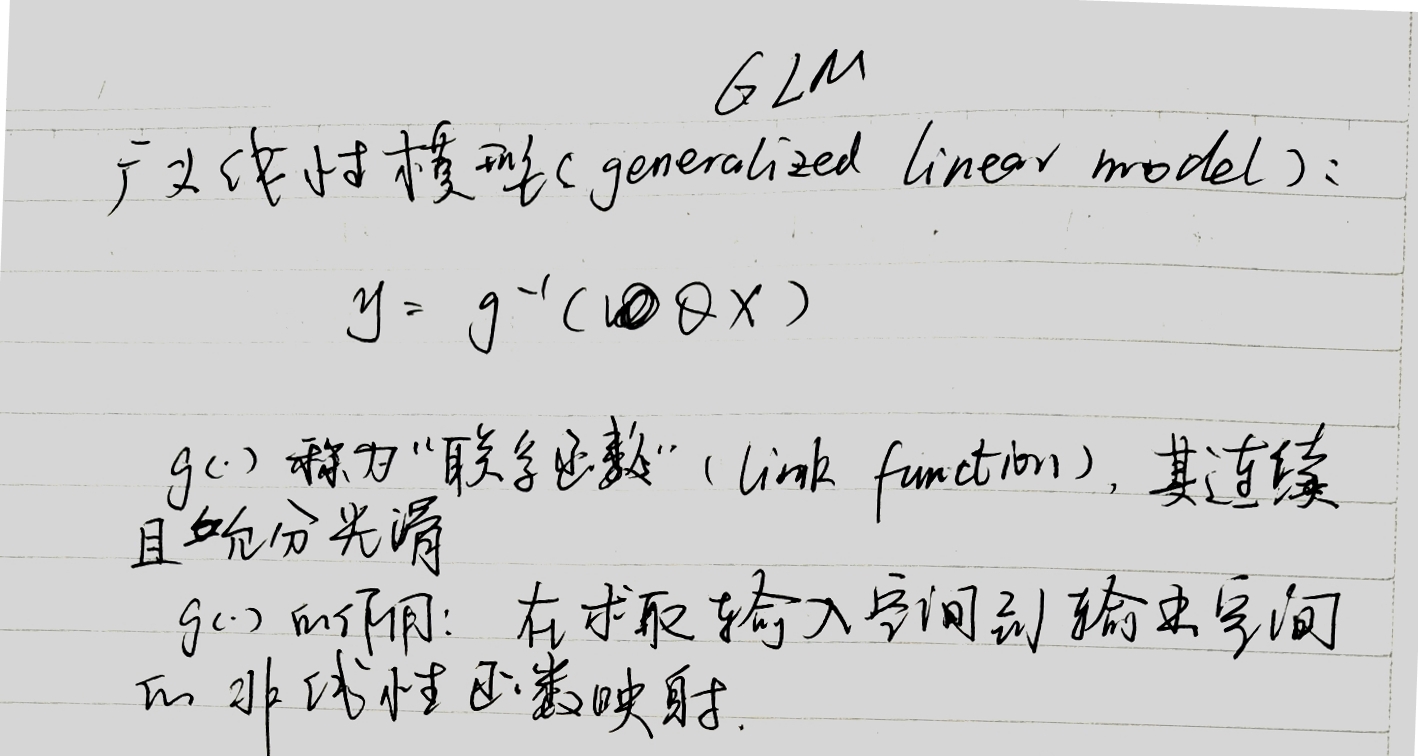 GLM
广义线性模型(generalized linear model):
y = g⁻¹(θX)
g(·)称为"联系函数"(link function),其连续
且充分光滑
g(·)的作用: 在求取输入空间到输出空间
的非线性函数映射.